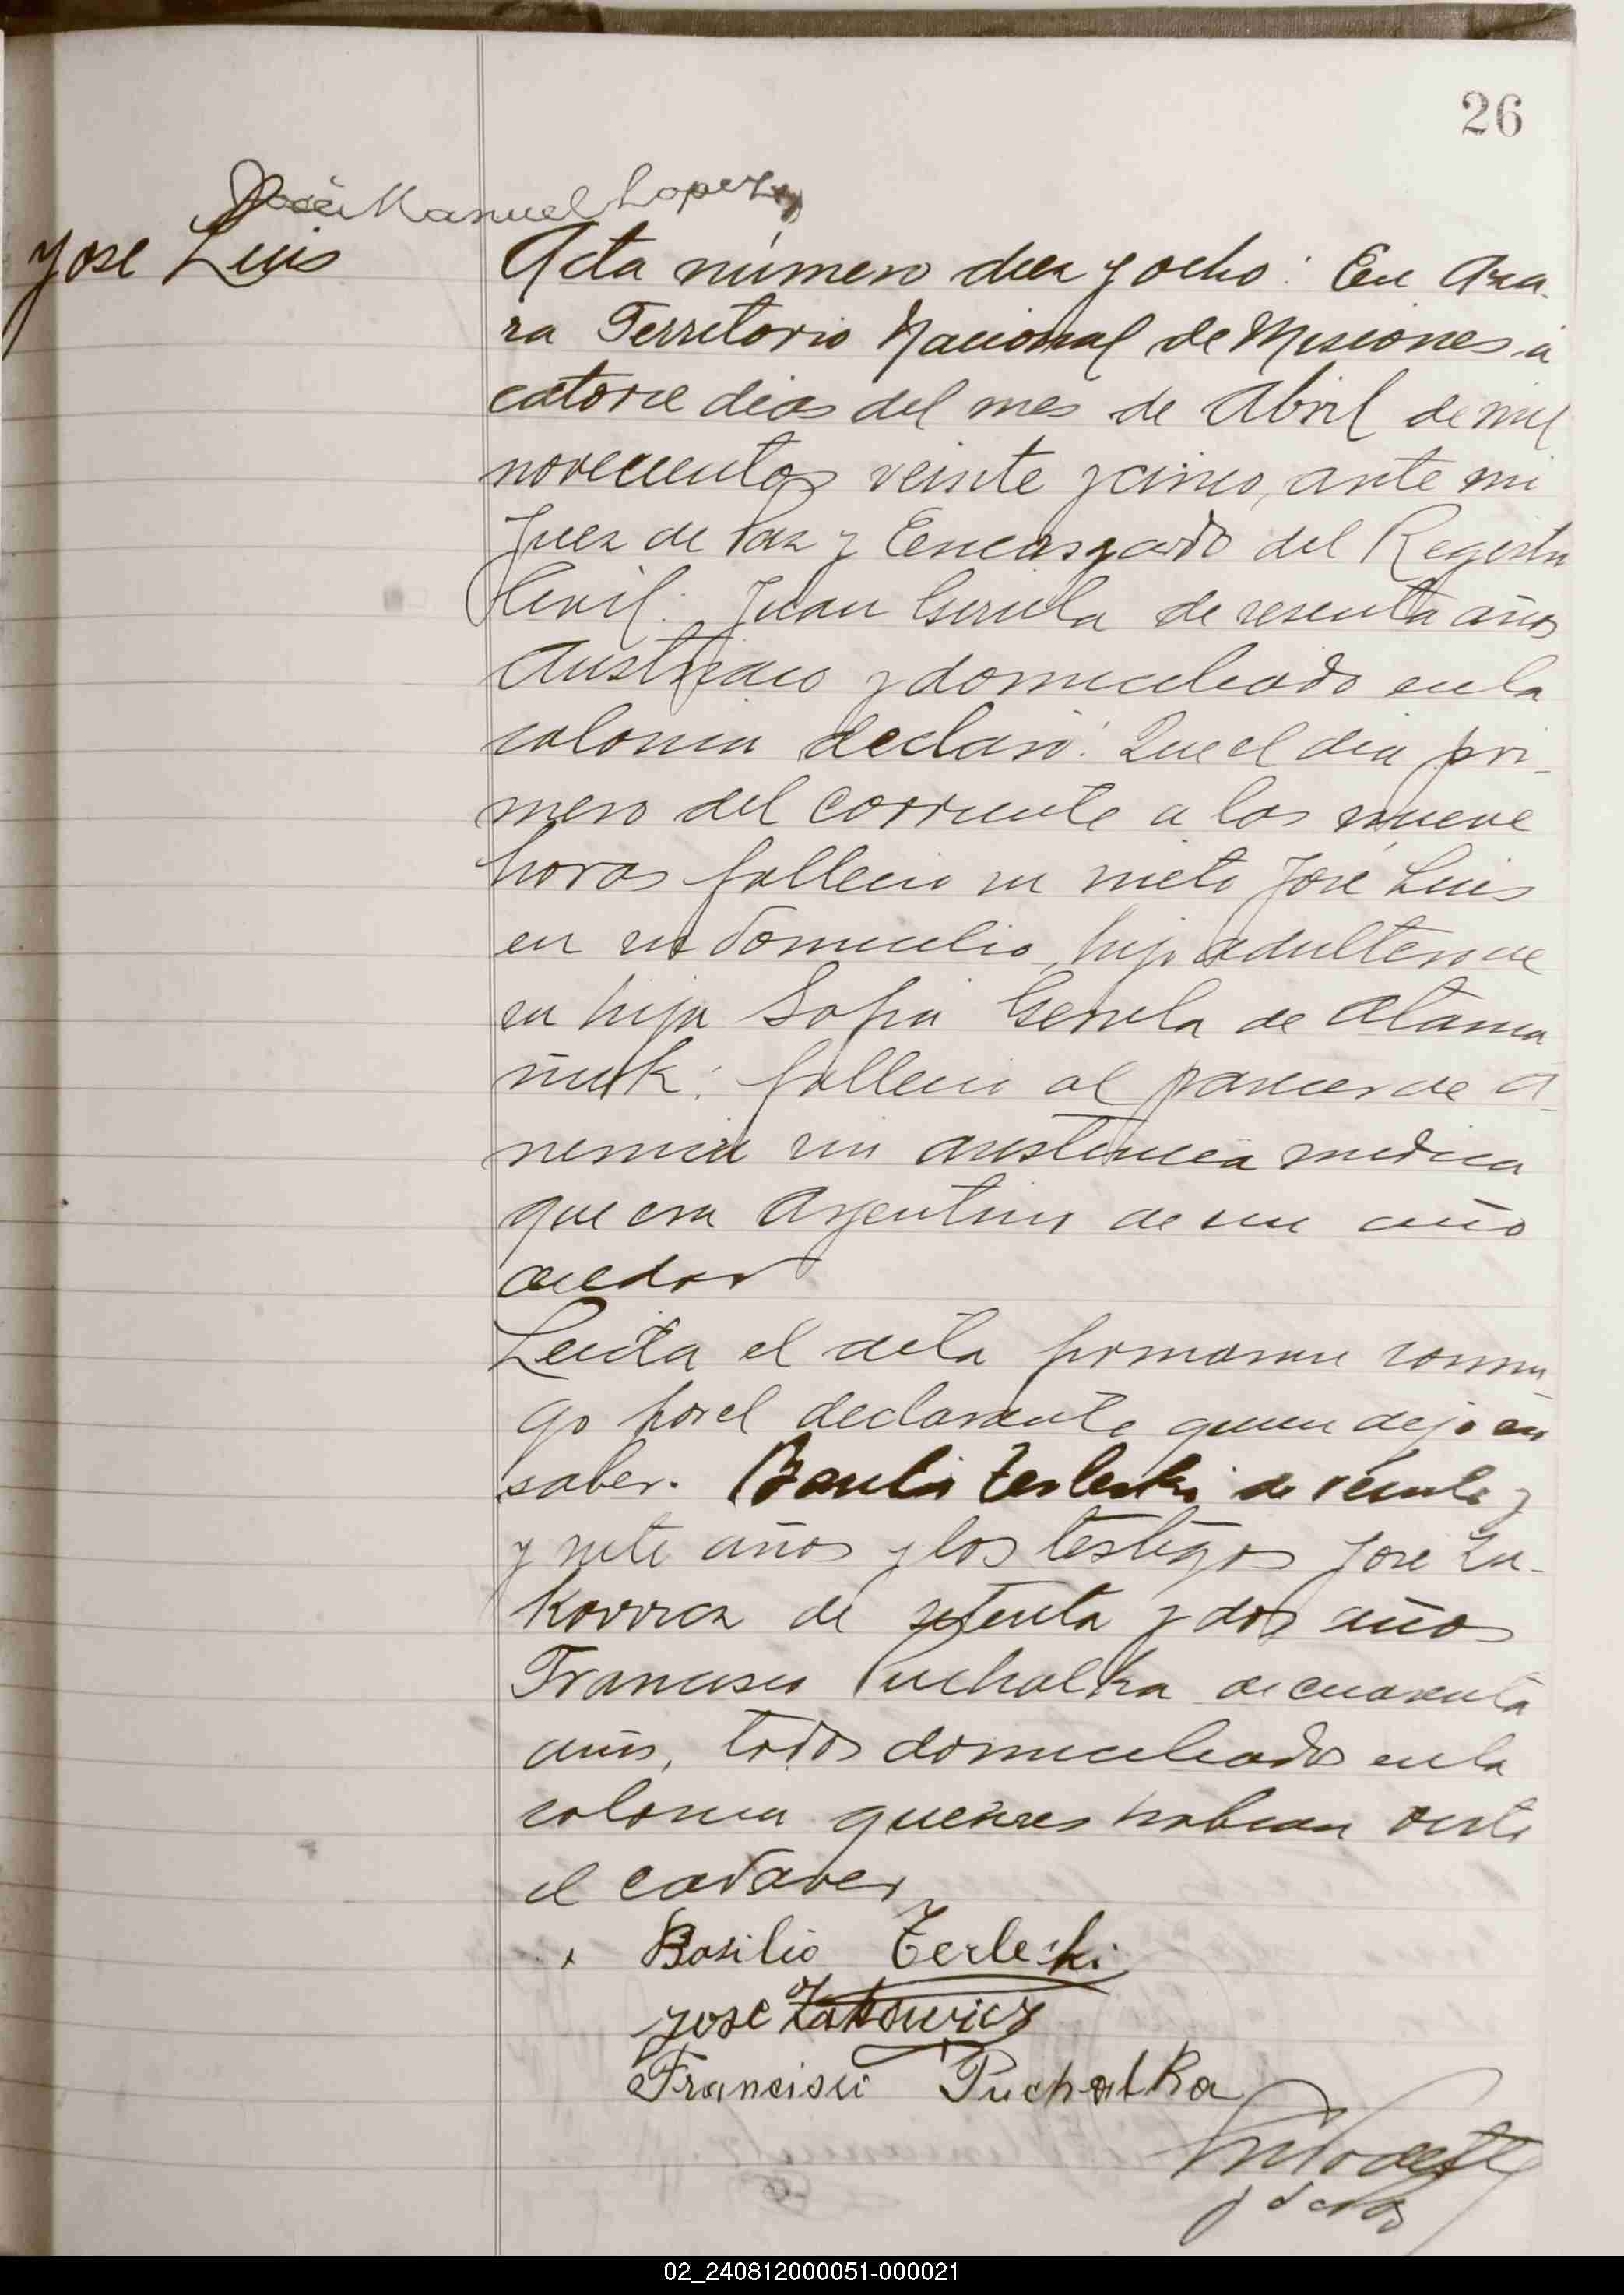 26
José Manuel Lopez
Jose Luis
Acta número diez y ocho: En Aza-
ra Territorio Nacional de Misiones á
catorce dias del mes de Abril de mil
novecientos veinte y cinco, ante mi
Juez de Paz y Encargado del Registro
Civil: Juan de sesenta años
Austriaco y domiciliado en la
colonia declaró: Que el dia pri-
mero del corriente a las nueve
horas fallecio su nieto José Luis
en su domicilio, hijo adulterino de
su hija Sofia de
fallecio al parecer de a-
nemia sin asistencia medica
que era Argentino de un año
de edad
Leida el acta firmaron conmi-
go por el declarante quien dijo no
saber. Basilio Terleski de veinte y
y siete años y los testigos José Za-
kovicz de setenta y dos años
Francisco Puchalka de cuarenta
años, todos domiciliados en la
colonia quienes habian visto
el cadaver
Basilio Terleski
Jose Zakowicz
Francisci Puchalka
02_240812000051-000021